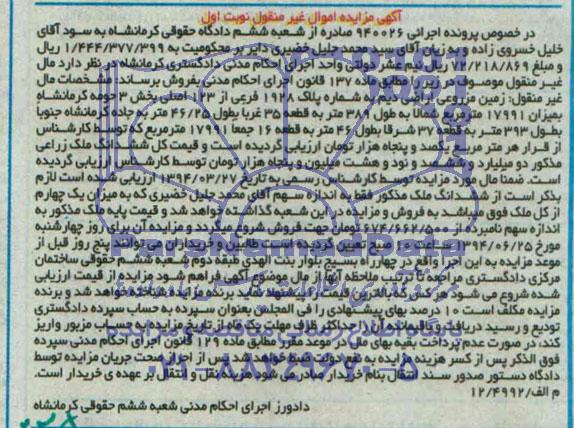 آگهی مزایده اموال غیر منقول نوبت اول
در خصوص پرونده اجرائی ۹۴۰۰۲۶ صادره از شعبه ششم دادگاه حقوقی کرمانشاه به سود آقای
خلیل خسروی زاده و به زیان آقای سید محمد جلیل خضیری دایر بر محکومیت به ۱/۴۴۴/۳۷۷/۳۹۹ ریال
و مبلغ ۷۲/۲۱۸/۸۶۹ ریال نیم عشر دولتی واحد اجرای احکام مدنی دادگستری کرمانشاه در نظر دارد مال
غیر منقول موصوف در زیر را مطابق ماده ۱۳۷ قانون اجرای احکام مدنی بفروش برساند: مشخصات مال
غیر منقول: زمین مزروعی اراضی دیم به شماره پلاک ۱۹۲۸ فرعی از ۱۲۳ اصلی بخش ۳ حومه کرمانشاه
بمیزان ۱۷۹۹۱ مترمربع شمالا به طول ۳۸۹ متر به قطعه ۳۵ غربا بطول ۴۶/۲۵ متر به جاده کرمانشاه جنوبا
بطول ۳۹۳ متر به قطعه ۳۷ شرقا بطول ۴۶ متر به قطعه ۱۶ جمعا ۱۷۹۹۱ مترمربع که توسط کارشناس
از قرار هر متر مربع یکصد و پنجاه هزار تومان ارزیابی گردیده است و قیمت کل ششدانگ ملک زراعی
مذکور دو میلیارد و ششصد و نود و هشت میلیون و پنجاه هزار تومان توسط کارشناس ارزیابی گردیده
است. ضمنا مال مورد مزایده توسط کارشناس رسمی به تاریخ ۱۳۹۴/۰۳/۲۷ ارزیابی شده است لازم
بذکر است از ششدانگ ملک مذکور فقط به اندازه سهم آقای محمد جلیل خضیری که به میزان یک چهارم
از کل ملک فوق میباشد به فروش و مزایده در این شعبه گذاشته خواهد شد و قیمت پایه ملک مذکور به
اندازه سهم نامبرده از ۶۷۴/۶۶۲/۵۰۰ تومان جهت فروش شروع میگردد و مزایده آن برای روز چهارشنبه
مورخ ۱۳۹۴/۰۶/۲۵ ساعت صبح تعیین گردیده است طالبین و خریداران می توانند پنج روز قبل از
موعد مزایده به این اجرا واقع در چهارراه بسیج بلوار بنت الهدی طبقه دوم شعبه ششم حقوقی ساختمان
مرکزی دادگستری مراجعه تا ترتیب ملاحظه آنها از مال موضوع آگهی فراهم شود مزایده از قیمت ارزیابی
شده شروع می شود هر کس که بالاترین قیمت را پیشنهاد نماید برنده مزایده شناخته خواهد شد و برنده
مزایده مکلف است ۱۰ درصد بهای پیشنهادی را فی المجلس بعنوان سپرده به حساب سپرده دادگستری
تودیع و رسید دریافت و مابقی را حداکثر ظرف مهلت یک ماه از تاریخ مزایده به حساب مزبور واریز
کند، در صورت عدم پرداخت بقیه بهای مال در موعد مقرر مطابق ماده ۱۲۹ قانون اجرای احکام مدنی سپرده
فوق الذکر پس از کسر هزینه مزایده به نفع دولت ضبط خواهد شد پس از احراز صحت جریان مزایده توسط
دادگاه دستور صدور سند انتقال بنام خریدار صادر می شود هزینه نقل و انتقال بر عهده ی خریدار است.
م الف/۱۲/۴۹۹۲
دادورز اجرای احکام مدنی شعبه ششم حقوقی کرمانشاه